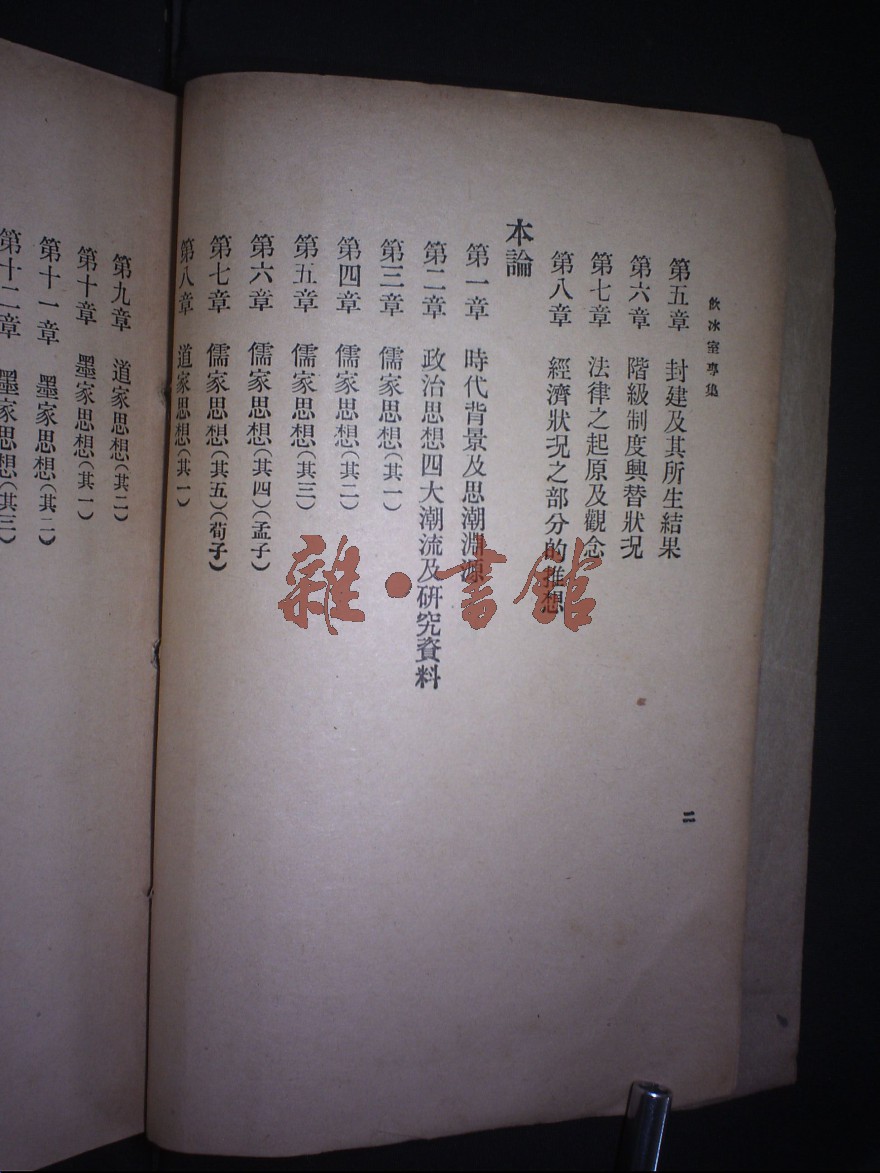 飲冰室專集
第五章 封建及其所生結果
第六章 階級制度興替狀況
第七章 法律之起原及觀念
第八章 經濟狀況之部分的推想
本論
第一章 時代背景及思潮淵源
第二章 政治思想四大潮流及研究資料
第三章 儒家思想(其一)
第四章 儒家思想(其二)
第五章 儒家思想(其三)
第六章 儒家思想(其四)(孟子)
第七章 儒家思想(其五)(荀子)
第八章 道家思想(其一)
二
第九章 道家思想(其二)
第十章 墨家思想(其一)
第十一章 墨家思想(其二)
第十二章 墨家思想(其三)
雜·書館